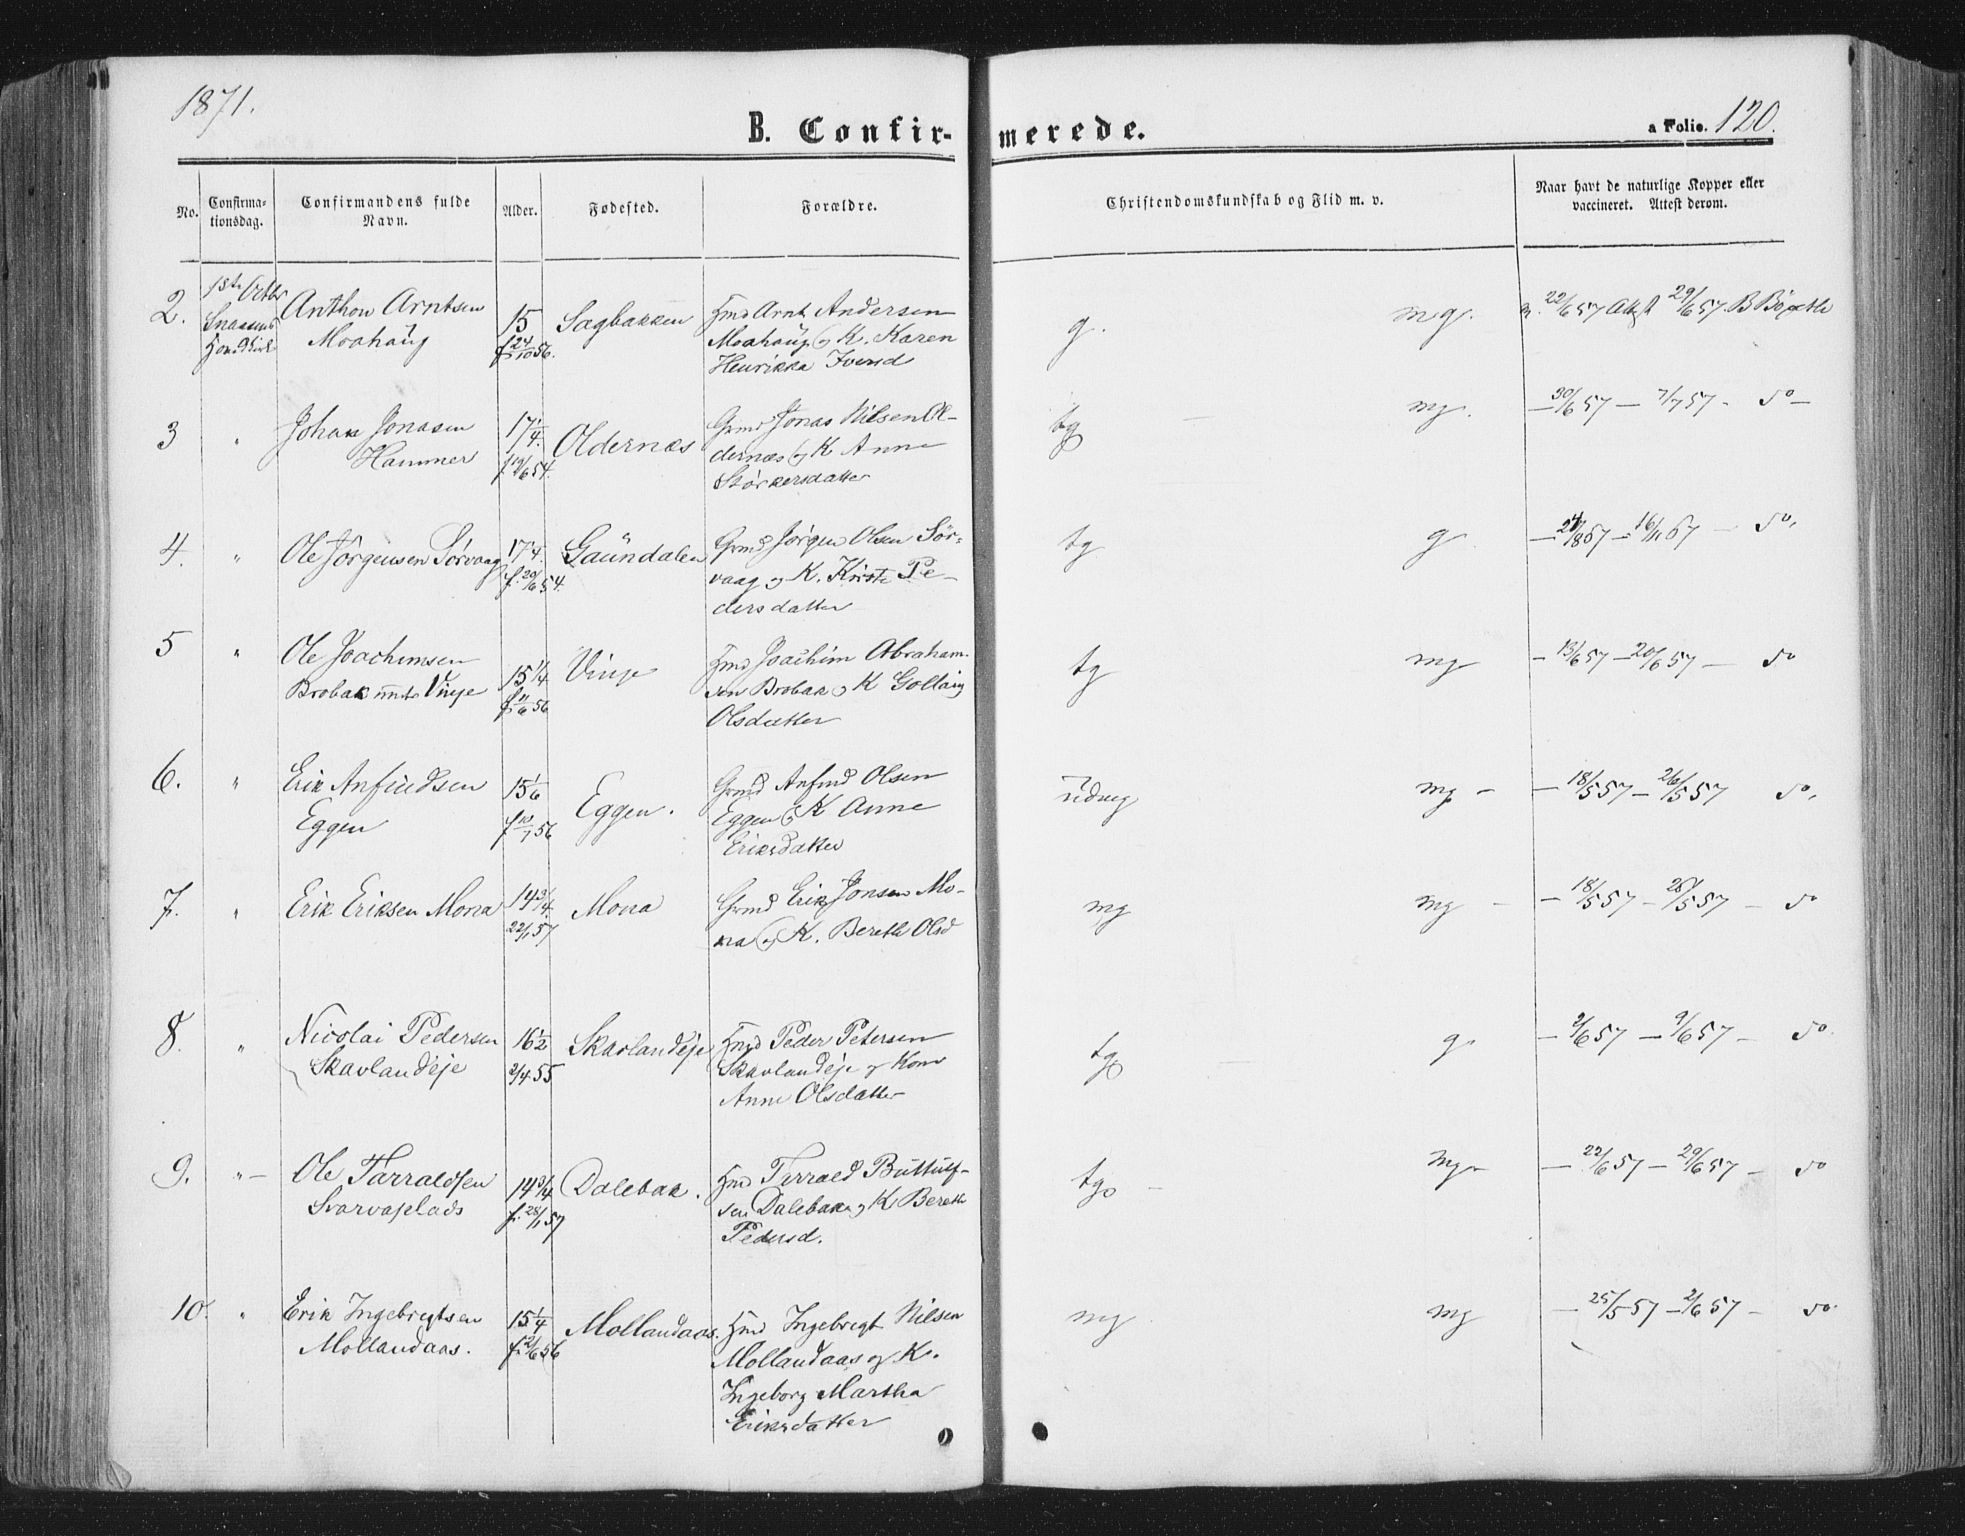 1871.
B. Confirmerede.
a Folio. 120.
No.
Confirmationsdag.
Confirmandens fulde Navn.
Alder.
Fødested.
Forældre.
Christendomskundskab og Flid m. v.
Naar havt de naturlige Kopper eller vaccineret. Attest derom.
2. 1ste Octbr Anthon Arntsen Moahaug 15 f. 24/10 56. Sagbakken
Hmd Arnt Andersen
Moahaug og K. Karen
Henrikka Iversd
g. mg. 22/6 57 Attest 29/6 57
3 " Johan Jonasen Hammer 17 1/4. f. 19/6 54. Oldernæs
Grmd Jonas Nilsen Ol-
dernæs og K Anne
Størkersdatter
tg mg. — 30/6 57 — 7/7 57 - do —
4. " Ole Jörgensen Sörvaag 17 1/4. f. 20/6 54. Gaundalen
Grmd Jörgen Olsen Sör-
vaag og K. Kirste Pe-
dersdatter
tg g. — 16/11 67 — do.
5 " Ole Joachimsen
Brobak Vinje 15 1/4 f 11/6 56 Vinje
Hmd Joachim Abraham-
sen Brobak og K
Olsdatter
tg mg — 13/6 57 — 20/6 57 — do
6. " Erik Anfindsen
Eggen 15 1/6 f 10/7 56 Eggen.
Grmd Anfind Olsen
Eggen og K Anne
Eriksdatter
udmg mg — 18/5 57 — 26/5 57 do.
7. " Erik Eriksen Mona 14 3/4. 22/1 57 Mona
Grmd Erik Jonsen Mo-
na og K. Bereth Olsd
mg mg — 18/5 57 — 28/5 57 — do
8. " Nicolai Pedersen
Skavlandeje 16 1/2 2/4 55 Skavlandeje
Hmd Peder Petersen
Skavlandeje og Kone
Anne Olsdatter
tg g. — 2/6 57 — 9/6 57 — do.
9. " — Ole Tarraldsen
Svarvaplads 14 3/4 f. 28/1 57 Dalebak.
Hmd Terrald Buttulf-
sen Dalebak og K Bereth
Pedersd.
tg. mg — 22/6 57 — 29/6 57 — do
10. " Erik Ingebrigtsen
Mollandaas. 15 1/4 f. 21/6 56 Mollandaas.
Hmd Ingebrigt Nilsen
Mollandaas og K.
Ingeborg Martha
Eriksdatter
mg mg — 25/5 57 — 2/6 57 — do.